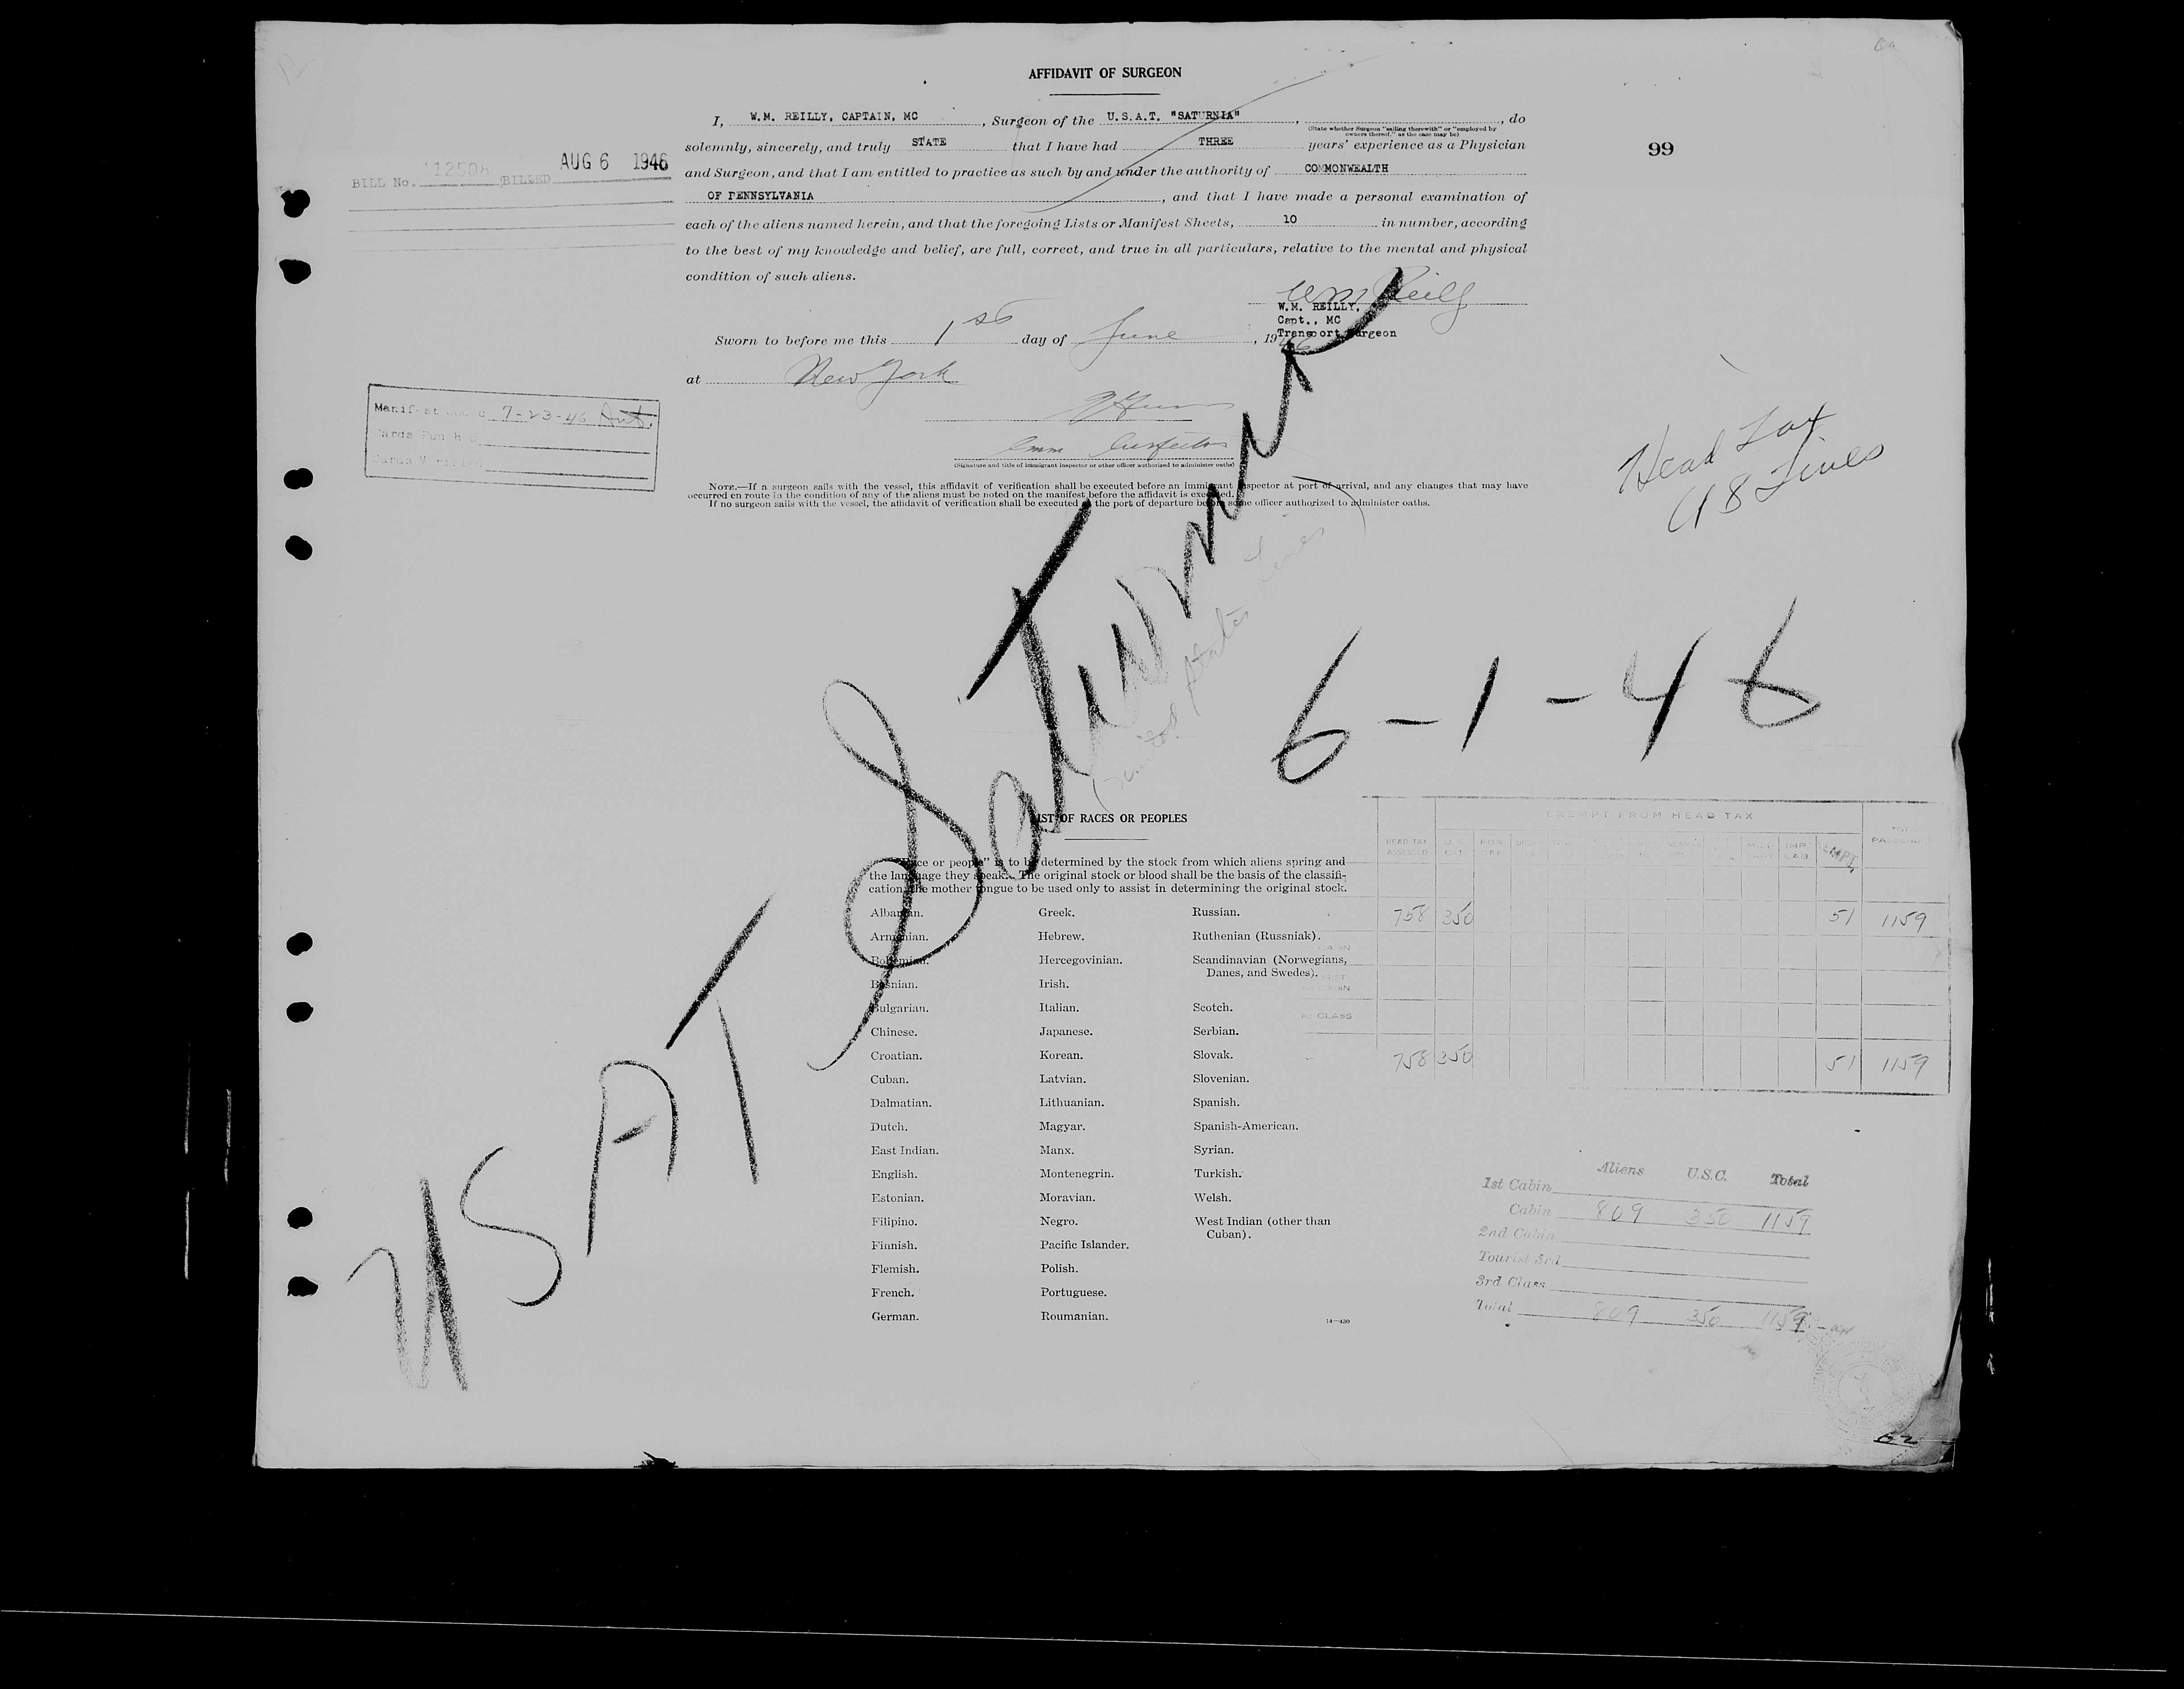 AFFIDAVIT OF SURGEON
I, W.M. REILLY, CAPTAIN, MC, Surgeon of the U.S.A.T. "SATURNIA", , do
(State whether Surgeon "sailing therewith" or "employed by
owners thereof," as the case may be)
solemnly, sincerely, and truly STATE that I have had THREE years' experience as a Physician
and Surgeon, and that I am entitled to practice as such by and under the authority of COMMONWEALTH
OF PENNSYLVANIA, and that I have made a personal examination of
each of the aliens named herein, and that the foregoing Lists or Manifest Sheets, 10 in number, according
to the best of my knowledge and belief, are full, correct, and true in all particulars, relative to the mental and physical
condition of such aliens.
99
BILL No. 112508 BILLED AUG 6 1946
Wm Reilly
W.M. REILLY,
Capt., MC
Transport Surgeon
Sworn to before me this 1st day of June, 1946
at New York
Imm Inspector
(Signature and title of immigrant inspector or other officer authorized to administer oaths)
Manifest 7-23-46
Cards Punched
Cards Verified
NOTE.—If a surgeon sails with the vessel, this affidavit of verification shall be executed before an immigrant inspector at port of arrival, and any changes that may have
occurred en route in the condition of any of the aliens must be noted on the manifest before the affidavit is executed.
If no surgeon sails with the vessel, the affidavit of verification shall be executed at the port of departure before some officer authorized to administer oaths.
Head Tax
U S Lines
USAT Saturnia
(United States Lines)
6-1-46
LIST OF RACES OR PEOPLES
"Race or people" is to be determined by the stock from which aliens spring and
the language they speak. The original stock or blood shall be the basis of the classifi-
cation, the mother tongue to be used only to assist in determining the original stock.
Albanian. Greek. Russian.
Armenian. Hebrew. Ruthenian (Russniak).
Bohemian. Hercegovinian. Scandinavian (Norwegians,
Danes, and Swedes).
Bosnian. Irish.
Bulgarian. Italian. Scotch.
Chinese. Japanese. Serbian.
Croatian. Korean. Slovak.
Cuban. Latvian. Slovenian.
Dalmatian. Lithuanian. Spanish.
Dutch. Magyar. Spanish-American.
East Indian. Manx. Syrian.
English. Montenegrin. Turkish.
Estonian. Moravian. Welsh.
Filipino. Negro. West Indian (other than
Cuban).
Finnish. Pacific Islander.
Flemish. Polish.
French. Portuguese.
German. Roumanian.
14—430
EXEMPT FROM HEAD TAX
HEAD TAX
ASSESSED
758 350 51 1159
CABIN
CLASS
758 350 51 1159
Aliens U.S.C. Total
1st Cabin
Cabin 809 350 1159
2nd Cabin
Tourist 3rd
3rd Class
Total 809 350 1159
62